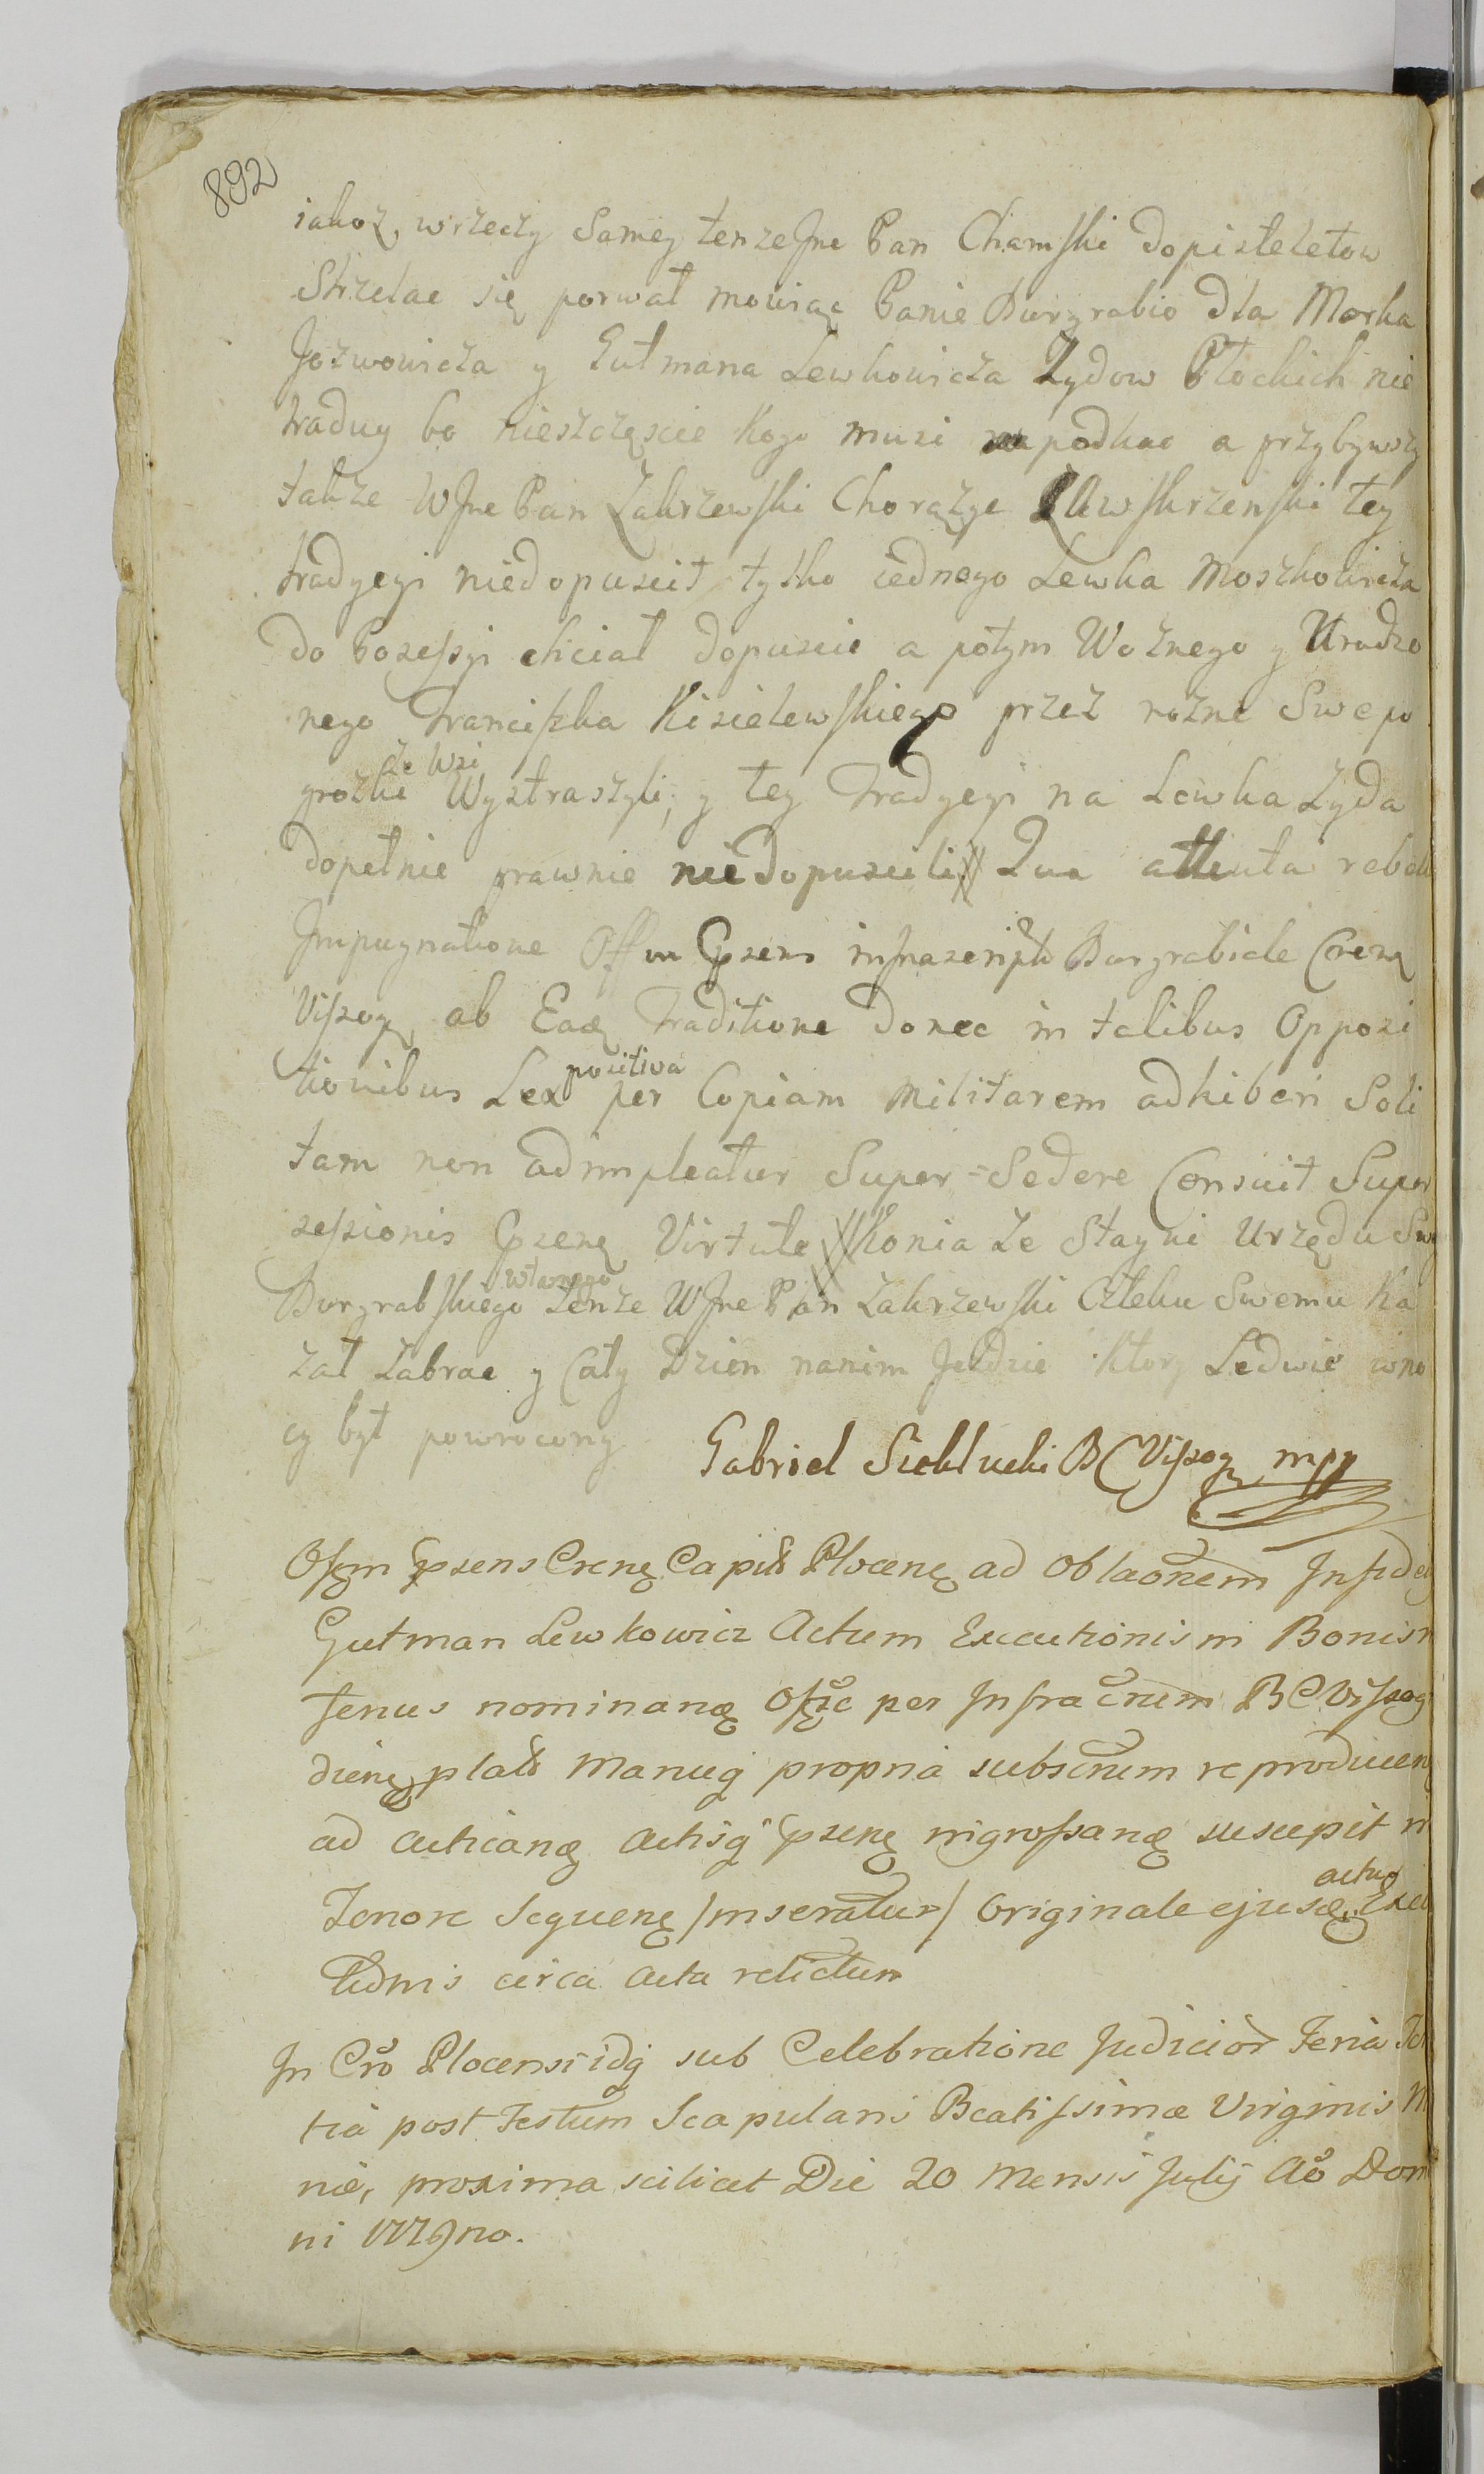 892
iakoż, w rzeczy Samey tenze Jne Pan Chamski do pisteletow
Strzelac się porwał mowiąc Panie Burgrabio dla Morka
Jozwowicza y Gutmana Lewkowicza Zydow Płockich nie
traduy bo nieszczęscie Kogo musi podkac a przybywszy
takze WJne Pan Zakrzewski Chorąźye Zawskrzenski tey
tradycyi niedopuscił, tylko iednego Lewka Moszkowicza
do Possessyi chciał dopuscic a potym Woznego y Urodzo
nego Franciszka Kisielewskiego przez rozne Swe po
ze Wsi
grozki Wystraszyli, y tey Tradycyi na Lewka Zyda
dopełnie prawnie niedopuscili // Qua attenta rebelli
Impugnatione Offm Gpsens infrascript Burgrabiale Crens
Vissog, ab Eaq Traditione donec in talibus Opposi
positiva
tionibus Lex per Copiam Militarem adhiberi Soli
tam non adimpleatur Super=Sedere Censuit Super
sessionis Gpseng Virtute // Konia Ze Stayni Urzędu Swe
własnego
Burgrabskiego Tenze WJne Pan Zakrzewski Człeku Swemu Ka
zał Zabrac y Cały Dzien nanim Jezdzic Ktory Ledwie w no
cy był powrocony
Gabriel Sieklucki B C Vissog mpp
Offm Gpsens Crens Capitt Plocens ad Oblaonem Infidel
Gutman Lewkowicz Actum Executionis in Bonis
tenus nominans Offic per Infracrum B C Vissog
diens platt Manug propria subscrum reproducen
ad acticang Actisq Gpseng ingrossang suscepit
actus
Tenore Sequens /inseratur/ Originale ejusd Exec
tionis circa Acta relictum
In Cro Plocensi idq sub Celebratione Judicior Feria Ter
tia post Festum Scapularis Beatissimæ Virginis M
riæ, proxima scilicet Die 20 Mensis Julij Ao Dom
ni 1779no.